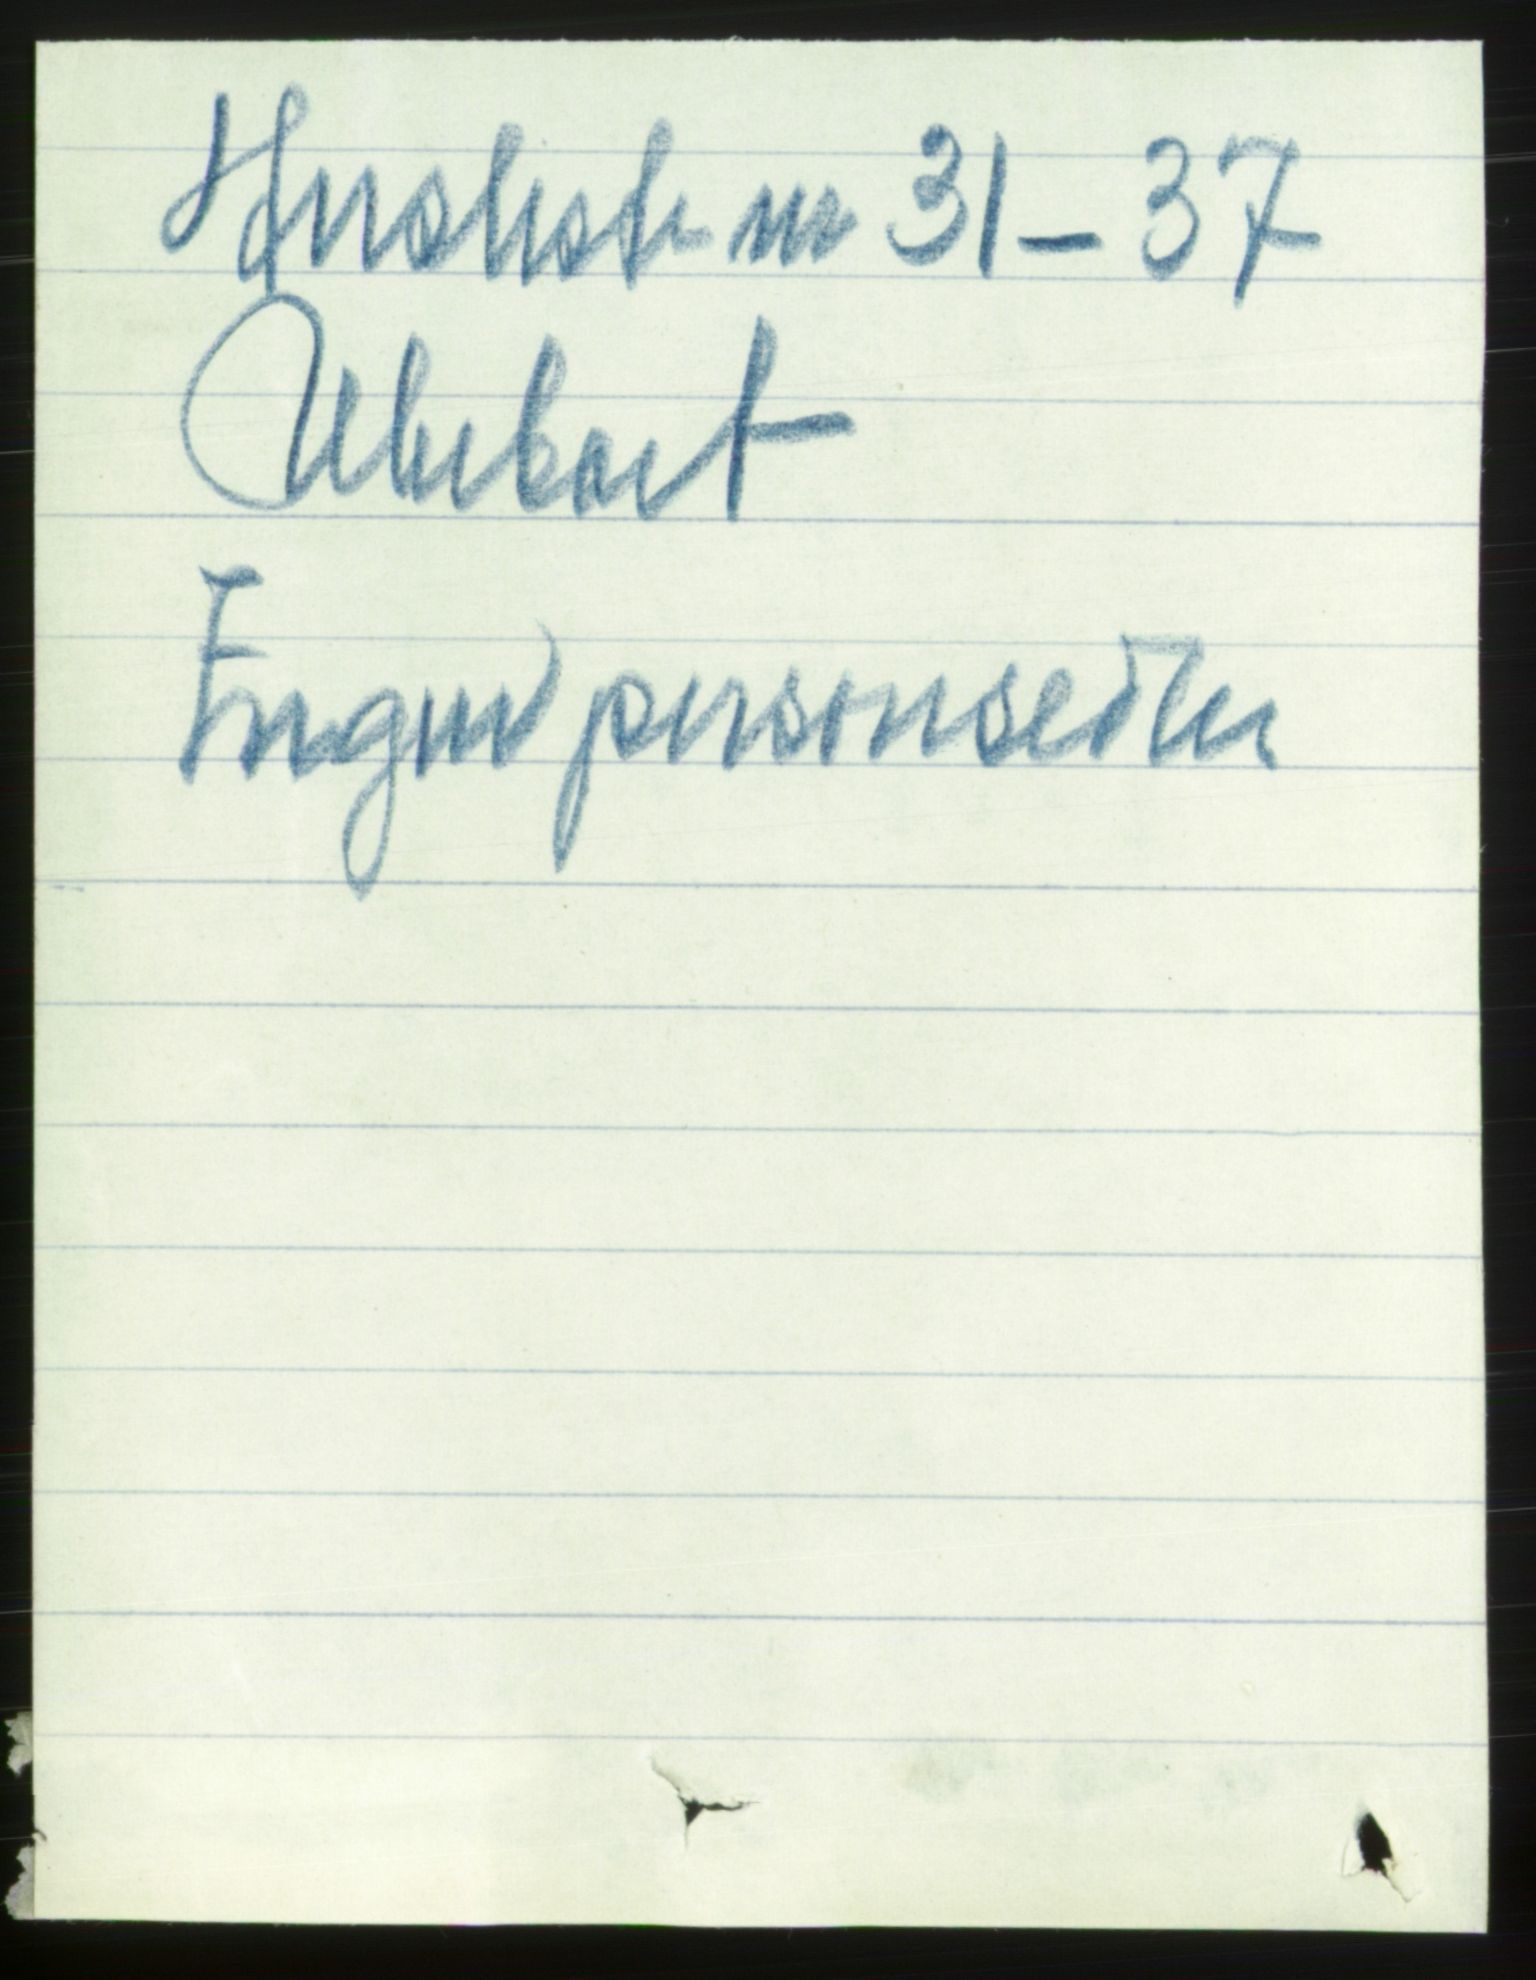 Husliste nr 31 – 37
Ubebort
Ingen personsedler